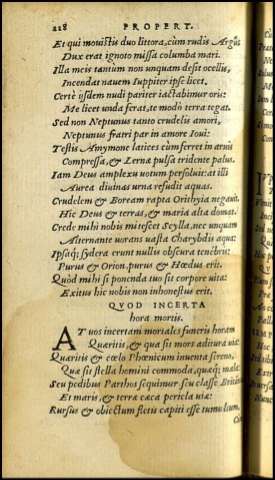 228 PROPERT.
Et qui mouistis duo littora, cùm rudis Argus
Dux erat ignoto missa columba mari.
Illa meis tantum non unquam desit ocellis,
Incendat nauem Iuppiter ipse licet.
Certè ijsdem nudi pariter iactabimur oris:
Me licet unda ferat, te modò terra tegat.
Sed non Neptunus tanto crudelis amori,
Neptunus fratri par in amore Ioui:
Testis Amymone latices cùm ferret in aruis
Compressa, & Lernæ pulsa tridente palus.
Iam Deus amplexu uotum persoluit: at illi
Aurea diuinas urna refudit aquas.
Crudelem & Boream rapta Orithyia negauit,
Hic Deus & terras, & maria alta domat.
Crede mihi nobis mitescet Scylla, nec unquam
Alternante uorans uasta Charybdis aqua:
Ipsaq; sydera erunt nullis obscura tenebris:
Purus & Orion, purus & Hœdus erit.
Quòd mihi si ponenda tuo sit corpore uita:
Exitus hic nobis non inhonestus erit.
QVOD INCERTA
hora mortis.
AT uos incertam mortales funeris horam
Quæritis, & qua sit mors aditura uia:
Quæritis & cœlo Phœnicum inuenta sereno,
Quæ sit stella homini commoda, quæq; mala:
Seu pedibus Parthos sequimur seu classe
Et maris, & terræ cæca pericla uiæ:
Rursus & obiectum fletis capiti esse tumultum,